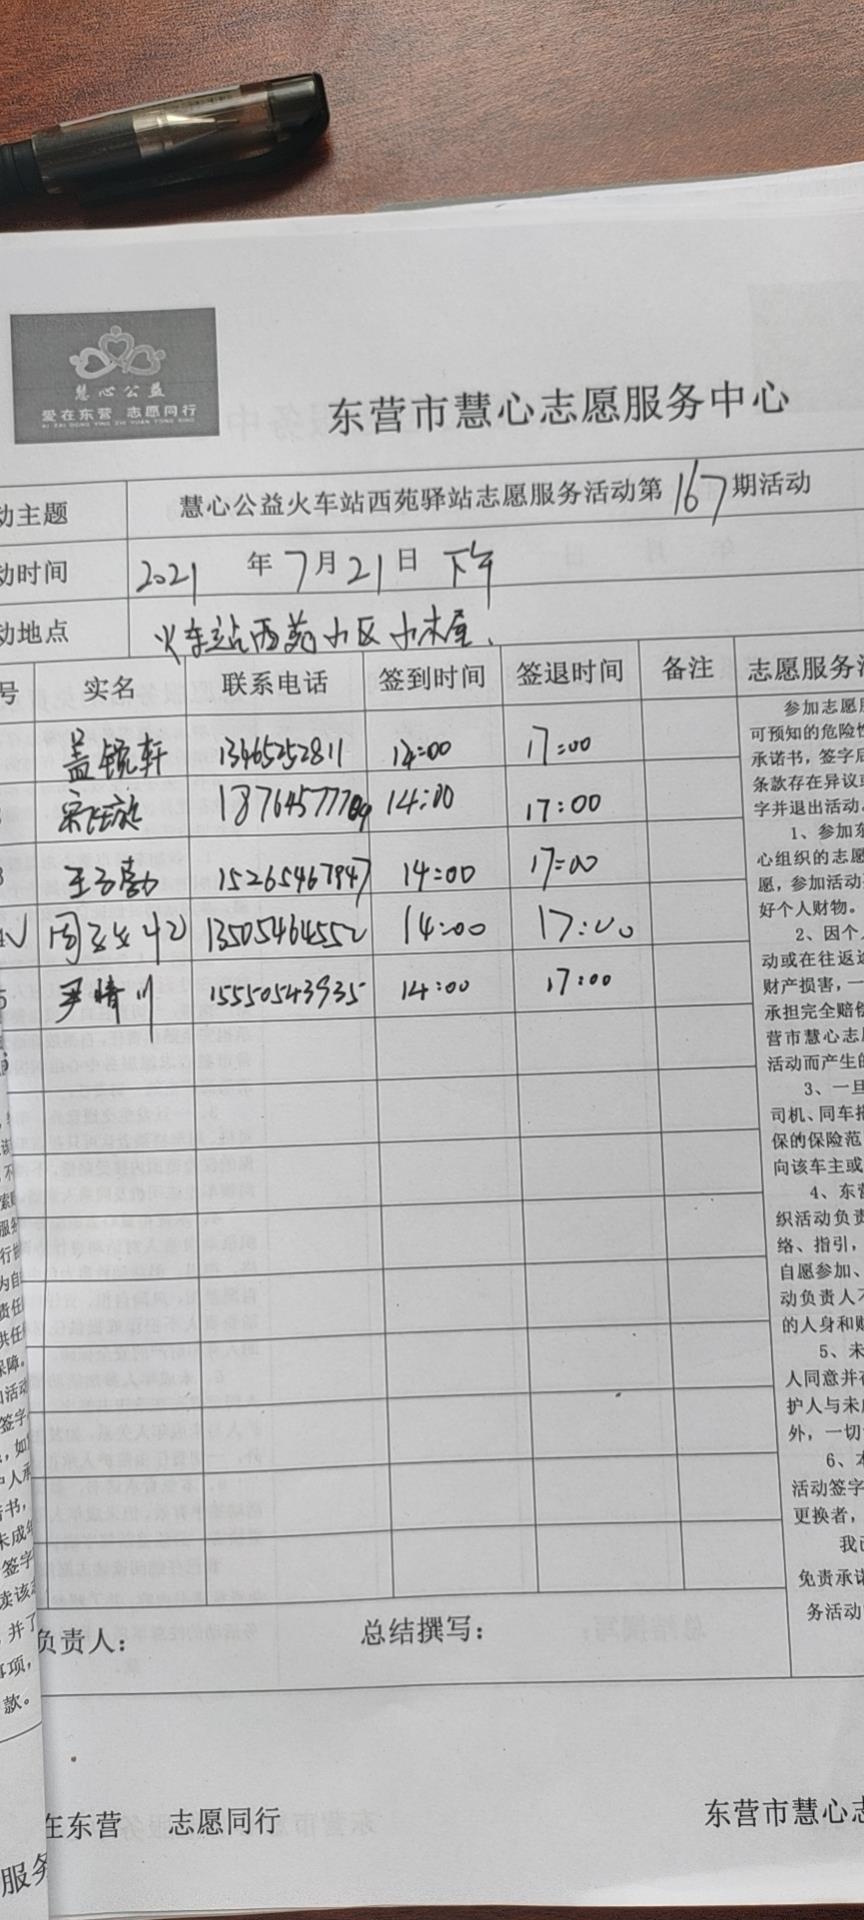 慧心公益
爱在东营 志愿同行
AI ZAI DONG YING ZHI YUAN TONG XING
东营市慧心志愿服务中心
动主题 慧心公益火车站西苑驿站志愿服务活动第167期活动
动时间 2021 年7月21日 下午
动地点 火车站西苑小区小木屋.
号 实名 联系电话 签到时间 签退时间 备注 志愿服务
盖锐轩 13465252811 14:00 17:00
187645777 14:00 17:00
3 王子勋 15265467947 14:00 17:00
4√ 周 13505464552 14:00 17:00
5 尹晴川 15550543935 14:00 17:00
参加志愿
可预知的危险性
承诺书，签字后
条款存在异议或
字并退出活动。
1、参加东
心组织的志愿
愿，参加活动
好个人财物。
2、因个人
动或在往返途
财产损害，一
承担完全赔偿
营市慧心志愿
活动而产生的
3、一旦
司机、同车搭
保的保险范
向该车主或
4、东营
织活动负责
络、指引，
自愿参加、
动负责人不
的人身和财
5、未
人同意并在
护人与未成
外，一切
6、本
活动签字
更换者，
我已
免责承诺
务活动
负责人： 总结撰写：
在东营 志愿同行 东营市慧心志
服务